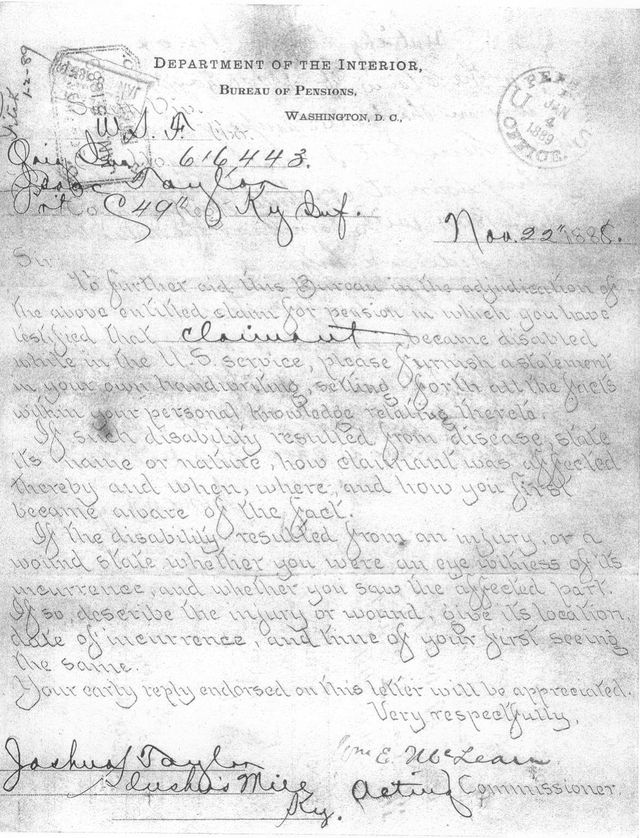 DEPARTMENT OF THE INTERIOR,
BUREAU OF PENSIONS,
WASHINGTON, D. C.,
1-2-89
PENS
U S
JAN
4
1889
OFFICE
W. S. F.
No 616443.
Taylor
Co C 49" Reg Ky Inf.
Nov. 22" 1888.
Sir:
To further aid this Bureau in the adjudication of
the above entitled claim for pension in which you have
testified that claimant became disabled
while in the U.S. service, please furnish a statement
in your own handwriting, setting forth all the facts
within your personal knowledge relating thereto.
If such disability resulted from disease, state
its name or nature, how claimant was affected
thereby and when, where, and how you first
became aware of the fact.
If the disability resulted from an injury, or a
wound state whether you were an eye witness of its
incurrence, and whether you saw the affected part.
If so, describe the injury or wound, give its location,
date of incurrence, and time of your first seeing
the same.
Your early reply endorsed on this letter will be appreciated.
Very respectfully,
Joshua Taylor
Wm E. McLean
Ky.
Acting Commissioner.